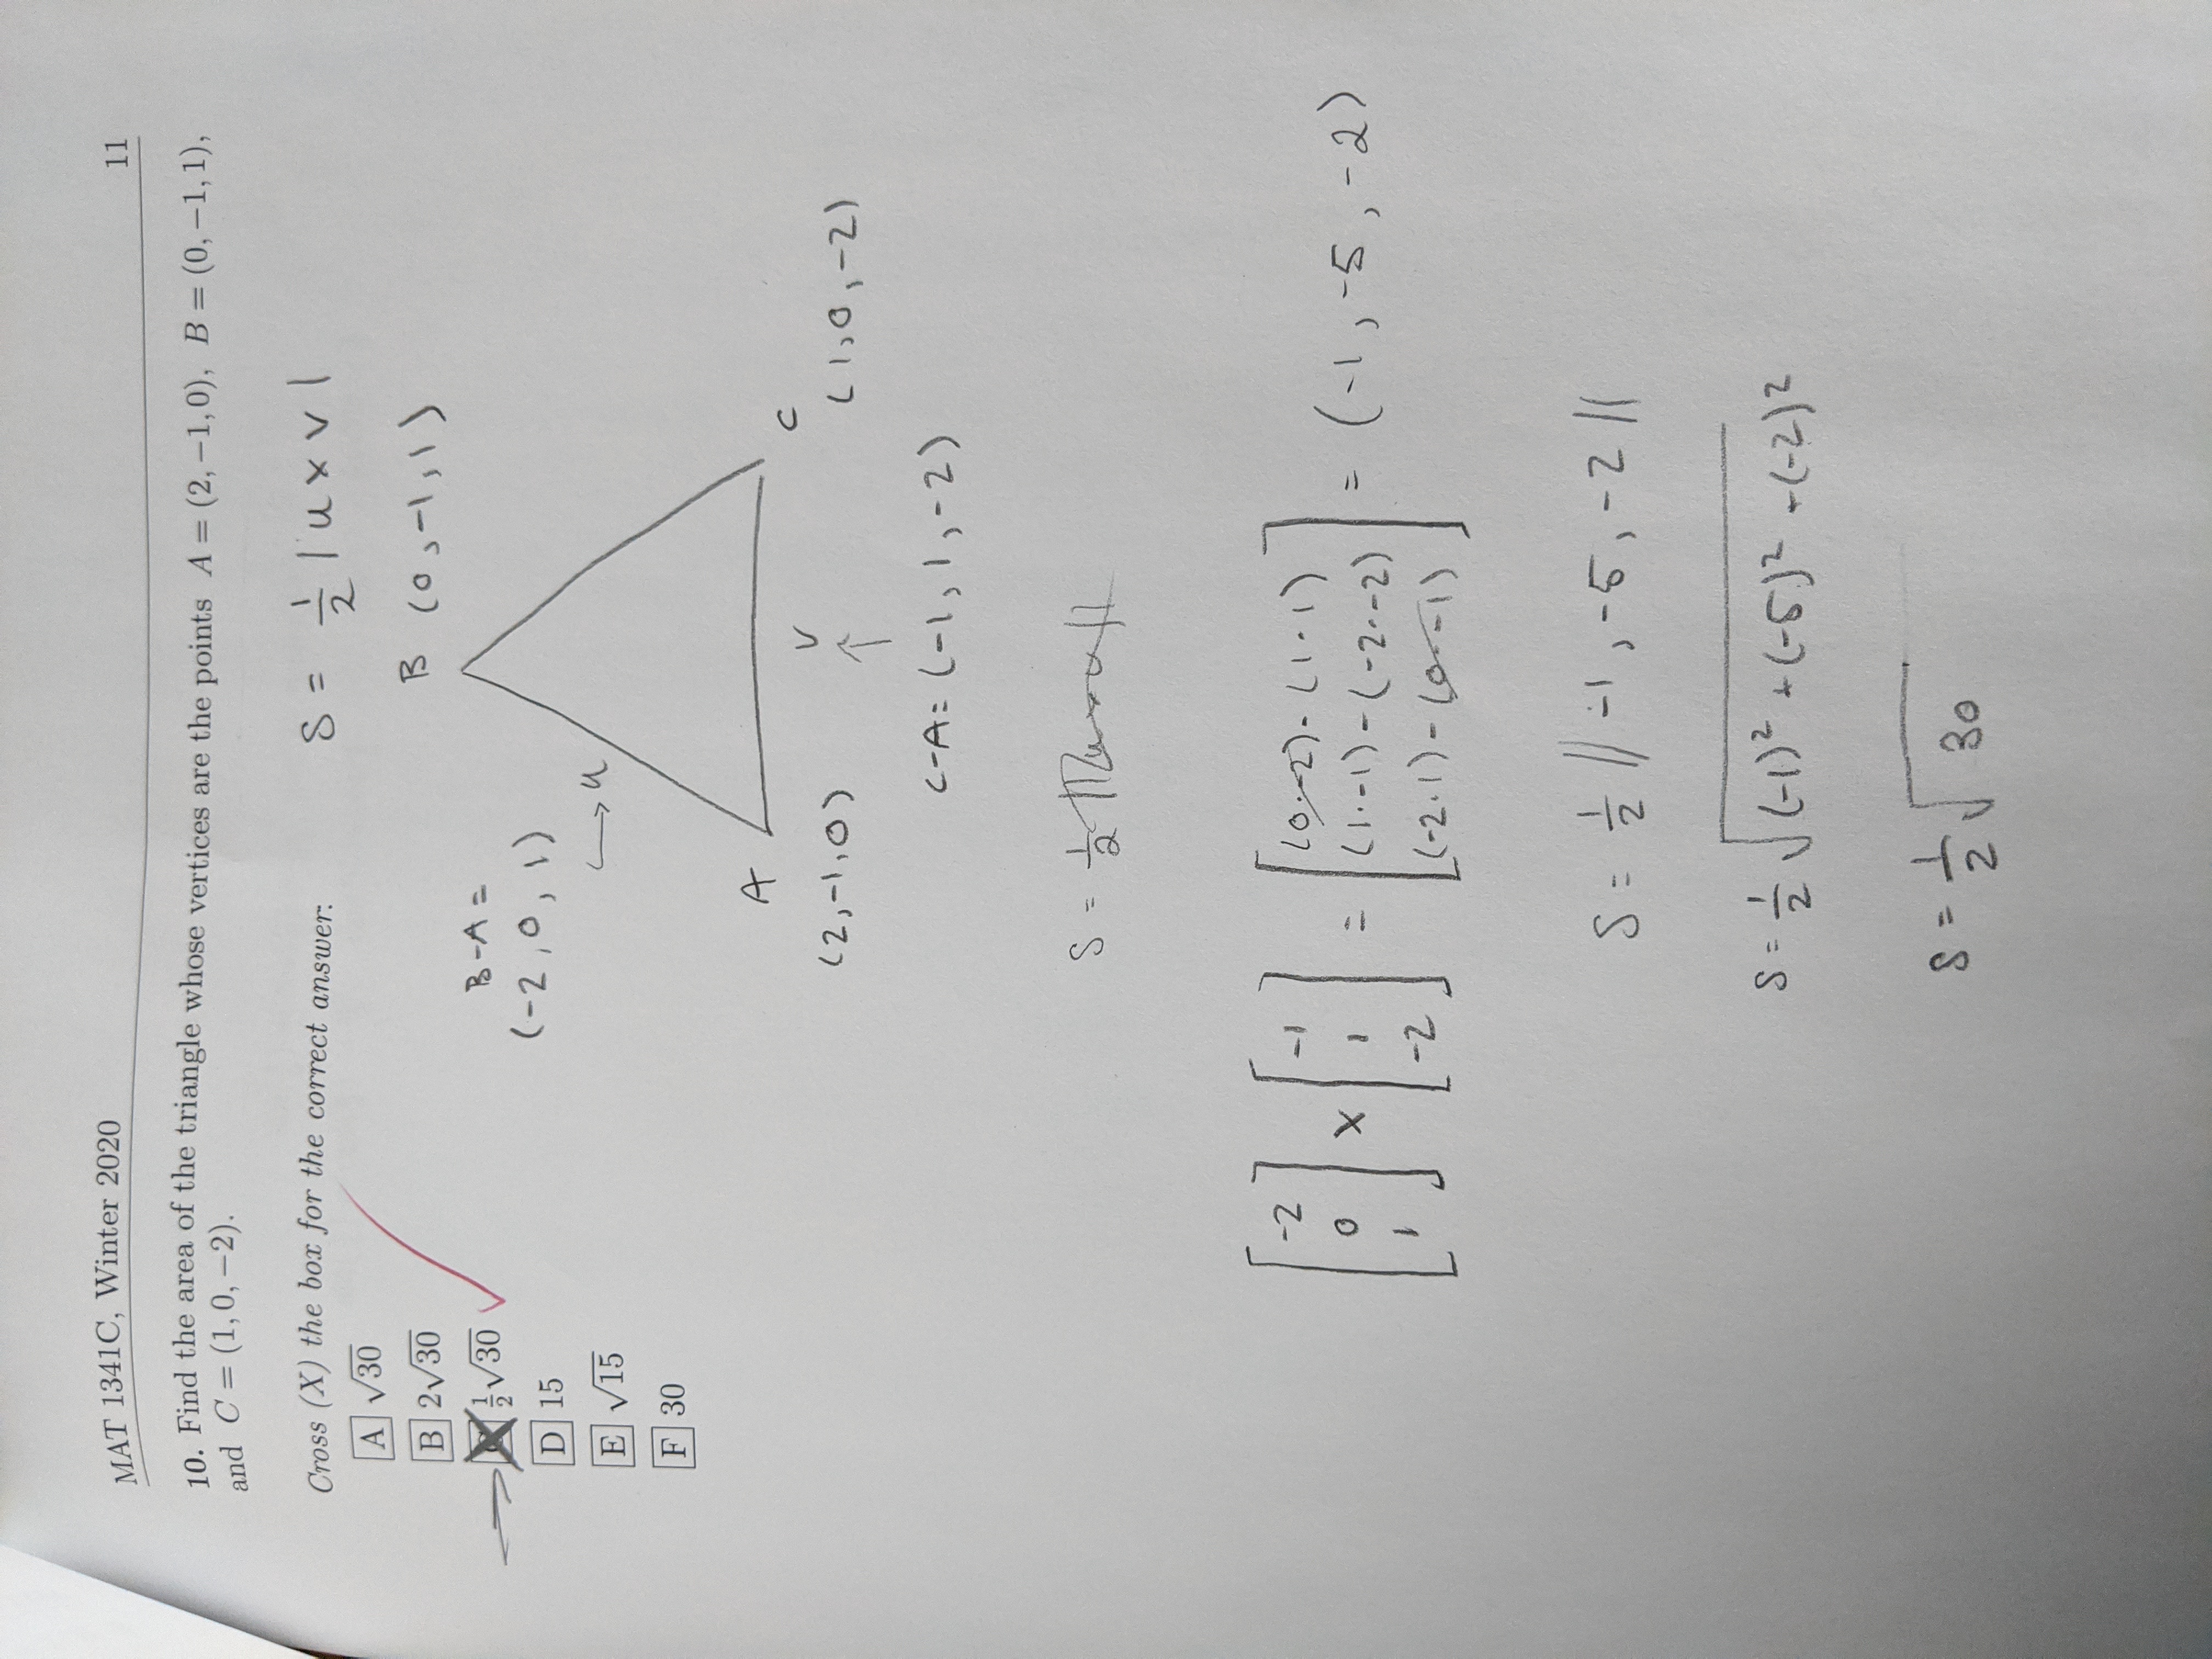 MAT 1341C, Winter 2020 11
10. Find the area of the triangle whose vertices are the points A = (2, −1, 0), B = (0, −1, 1),
and C = (1, 0, −2).
Cross (X) the box for the correct answer:
A √30
B 2√30
C ½√30
D 15
E √15
F 30
S = ½ | u x v |
B (0, -1, 1)
B-A =
(-2, 0, 1)
→ u
A
C
(2, -1, 0)
v
(1, 0, -2)
C-A = (-1, 1, -2)
S = ½
[-2 0 1] x [-1 1 -2] = [(0·-2) - (1·1) (1·-1) - (-2·-2) (-2·1) - (0·-1)] = (-1, -5, -2)
S = ½ || -1, -5, -2 ||
S = ½ √(-1)² + (-5)² + (-2)²
S = ½ √30